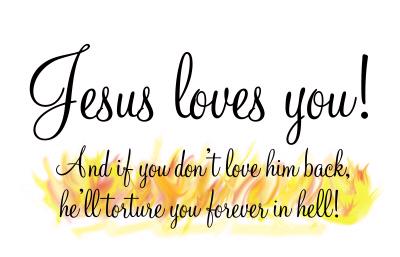 Jesus loves you!
And if you don't love him back,
he'll torture you forever in hell!